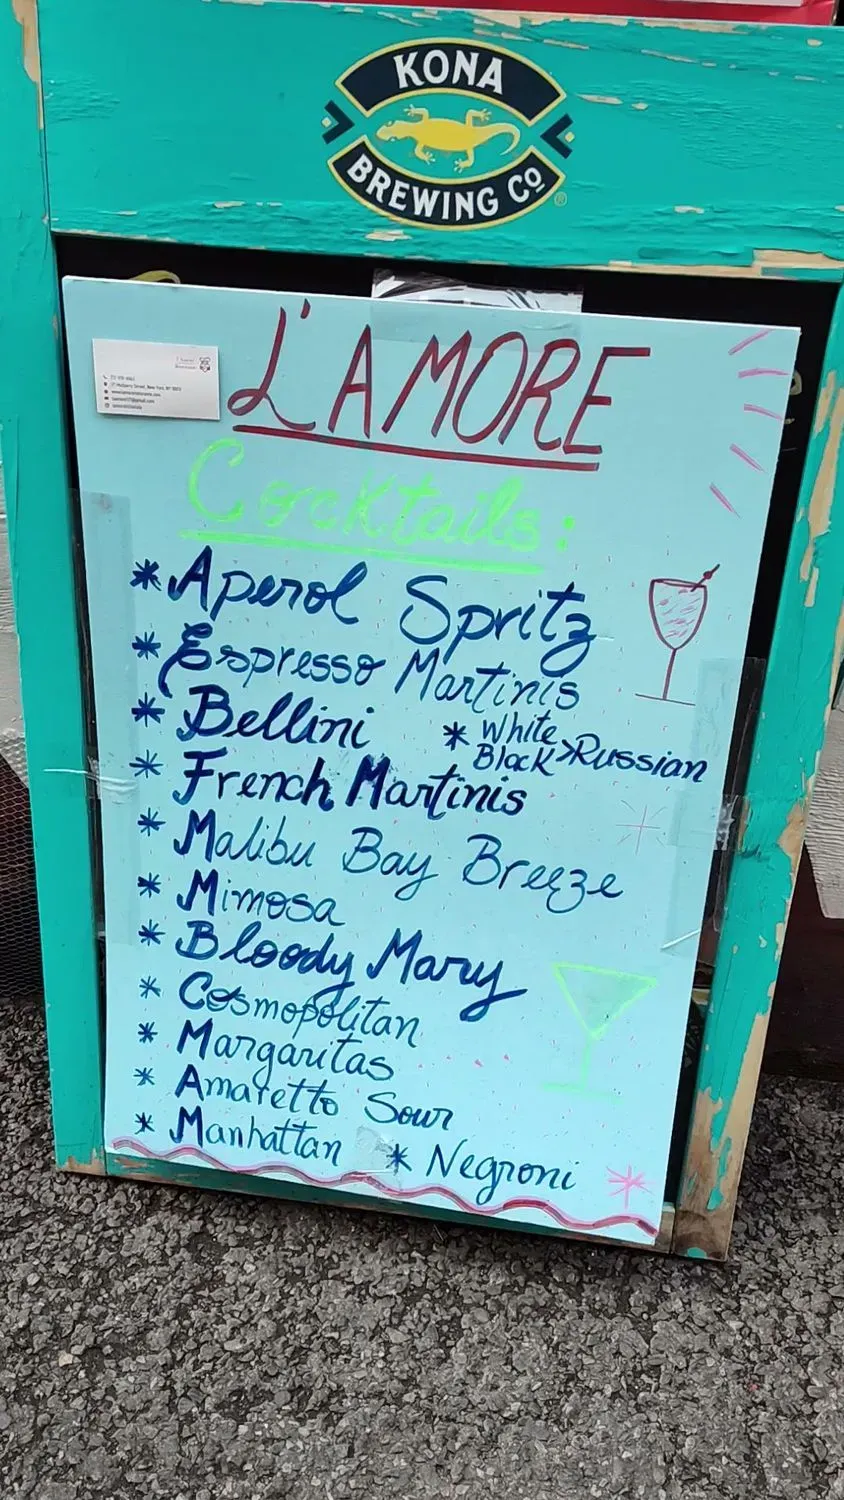 KONA
BREWING Co
L'AMORE
Cocktails:
* Aperol Spritz
* Espresso Martinis
* Bellini
* White
Black > Russian
* French Martinis
* Malibu Bay Breeze
* Mimosa
* Bloody Mary
* Cosmopolitan
* Margaritas
* Amaretto Sour
* Manhattan * Negroni